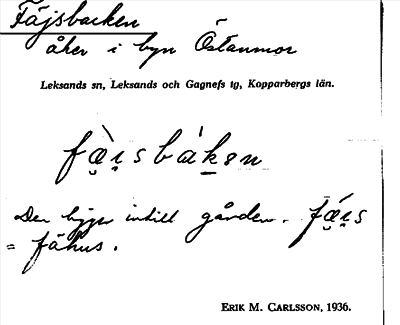 Fäjsbacken
åker i byn Östanmor
Leksands sn, Leksands och Gagnefs tg, Kopparbergs län.
fæ̀ɪsbákən
Den ligger intill gården. fǽɪs
= fähus.
ERIK M. CARLSSON, 1936.